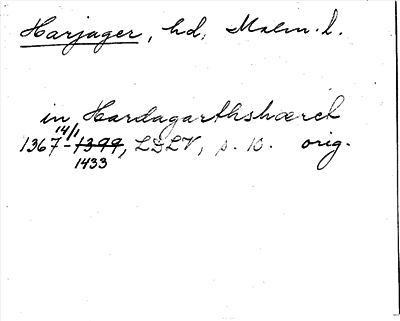 Harjager, hd, Malm. l.
in Hardagarthshæret
14/1
1367-1399, LDLV, p. 10. orig.
1433